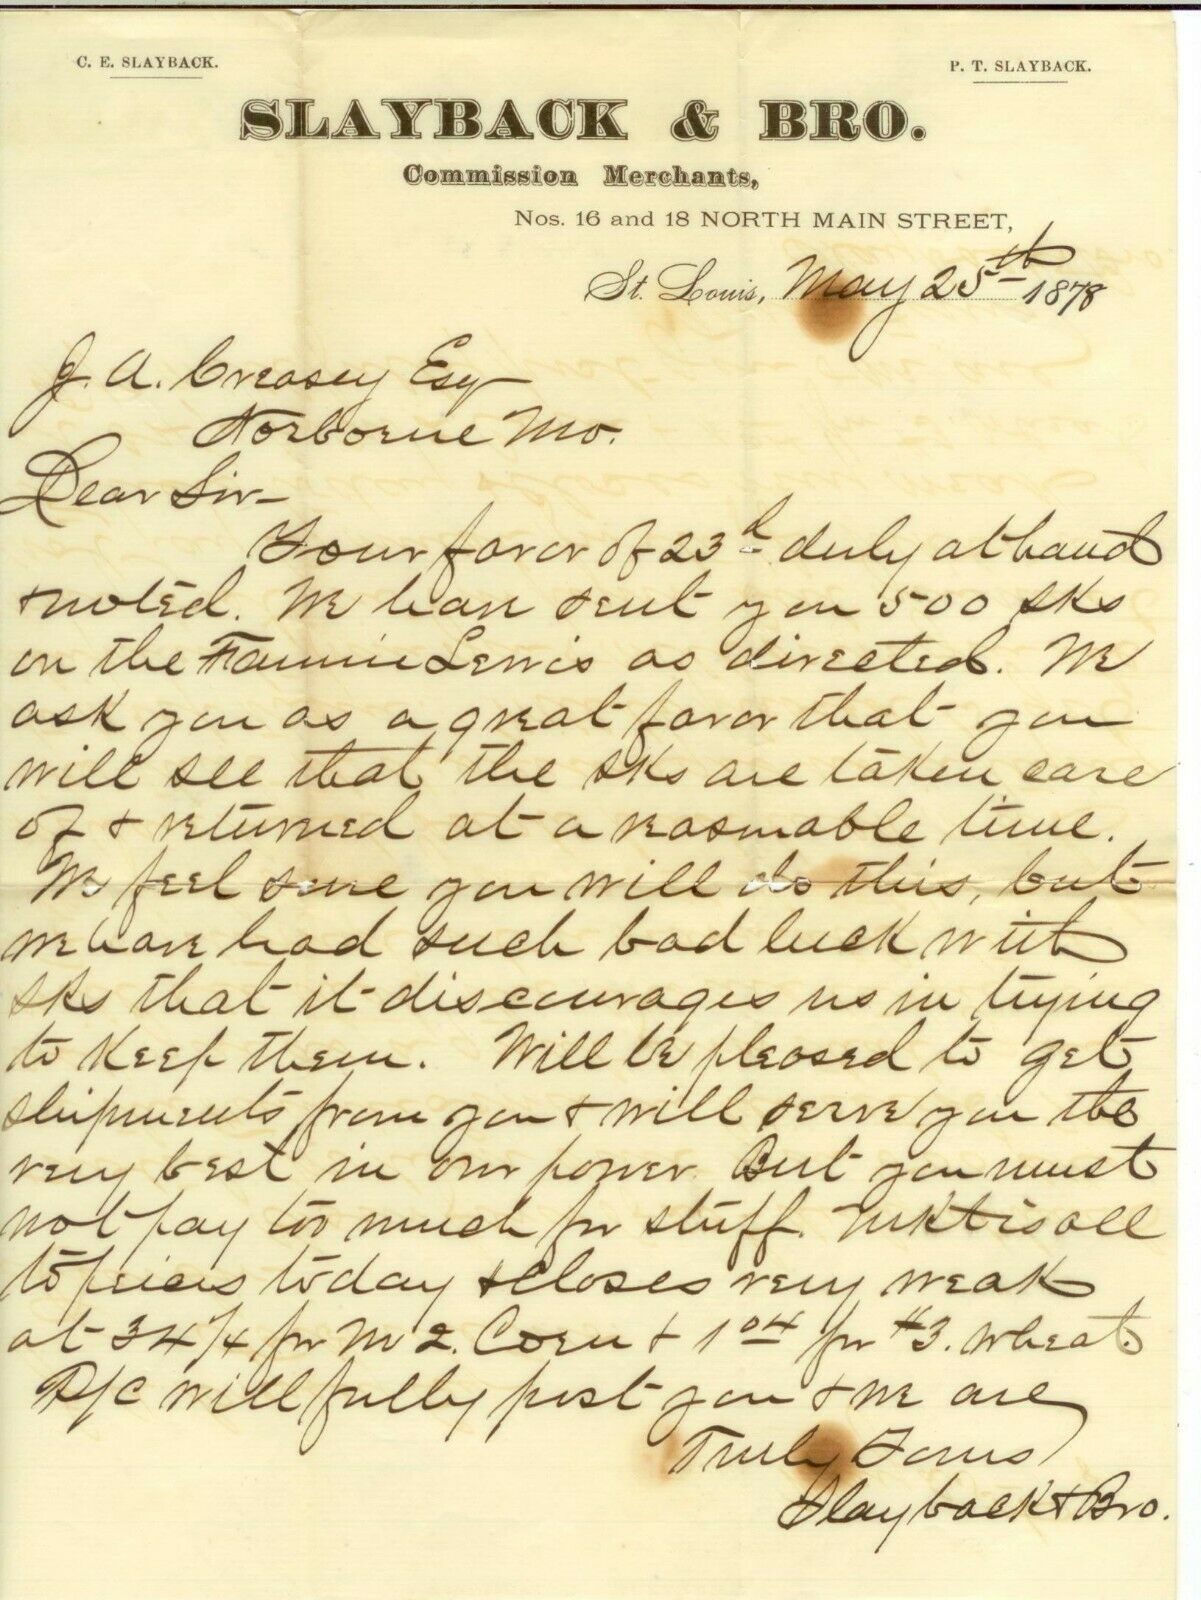 C. E. SLAYBACK.
P. T. SLAYBACK.
SLAYBACK & BRO.
Commission Merchants,
Nos. 16 and 18 NORTH MAIN STREET,
St. Louis, May 25th 1878
J. A. Creasey Esq
Norborne Mo.
Dear Sir-
Your favor of 23d duly at hand
& noted. We have sent you 500 sks
on the Fannie Lewis as directed. We
ask you as a great favor that you
will see that the sks are taken care
of & returned at a reasonable time.
We feel sure you will do this, but
we have had such bad luck with
sks that it discourages us in trying
to keep them. Will be pleased to get
shipments from you & will serve you the
very best in our power. But you must
not pay too much for stuff. Mkt is all
to peices today & closes very weak
at 34 1/4 for No 2. Corn & 1 04 for #3. wheat.
P/C will fully post you & we are
Truly Yours
Slayback & Bro.